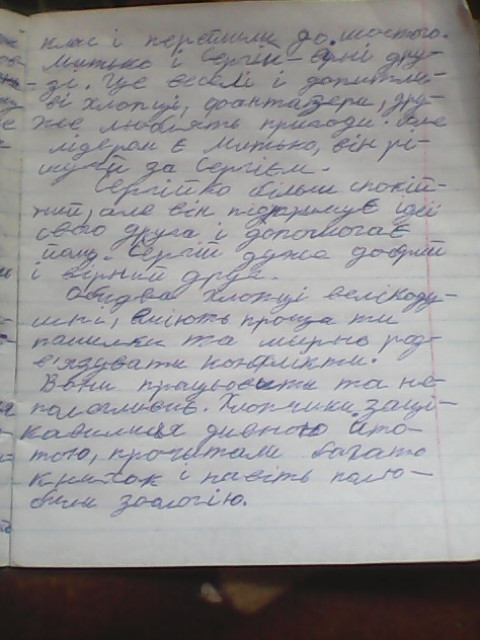 клас і перейшли до шостого.
Митько і Сергій – вірні дру-
зі. Це веселі і допитли-
ві хлопці, фантазери, ду-
же люблять пригоди. Але
лідером є Митько, він рі-
шучий за Сергієм.
Сергійко більш спокій-
ний, але він підтримує ідеї
свого друга і допомагає
йому. Сергій дуже добрий
і вірний друг.
Обидва хлопці велікоду-
шні, вміють проща ти
помилки та мирно роз-
в'язувати конфлікти.
Вони працьовити та не
полохливі. Хлопчики заці-
кавились дивною істо-
тою, прочитали багато
книжок і навіть полю-
били зоологію.